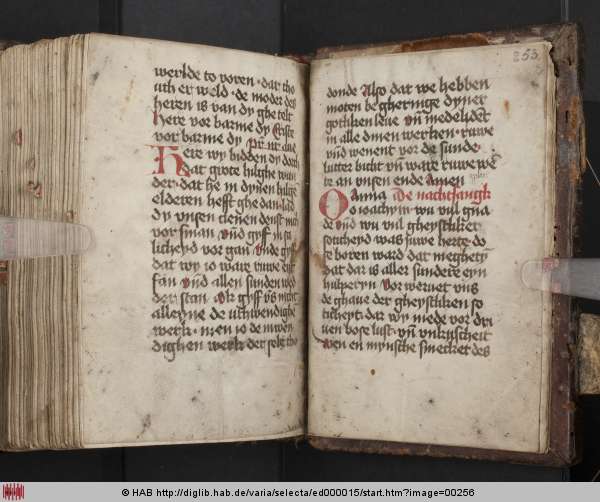 werlde to voren · dar tho
uth er weld · de moder des
heren is van dy ghe telt
here vor barme dy Criste
vor barme dy
Here wy bidden dy dorch
dat grote hilghe wun
der · dat he in dynen hilge
elderen hefft ghe dan · lad
dy unsen denst
vor sman und gyff in so
licheyd vor gan Unde gyff
dat wy so ware ruwe
fan Und allen sunden
der stan nicht
alleyne de uthwendighe
werk · men io de inwen
dighen werk der sele tho
253
donde Also dat we hebben
moten be gheringe dyner
gotliken leve vnd
in alle dinen werken · ruwe
vnd wenent vor de sunde
lutter bicht vnd ware ruwe we
te an vnsen ende Amen
O Anna De nachtsangk
o ioachym wu vul
de vnd wu vul gheystliker
soticheyd was suwe herte do
te boren ward dat meghetyn
dat dar is aller sundere eyn
hulperyn Vor weruet vns
de ghaue der gheystliken so
ticheyt · dar wy mede vor dri
uen bose lust · vnd vnkuscheit
wen en mynsche smecket des
© HAB http://diglib.hab.de/varia/selecta/ed000015/start.htm?image=00256